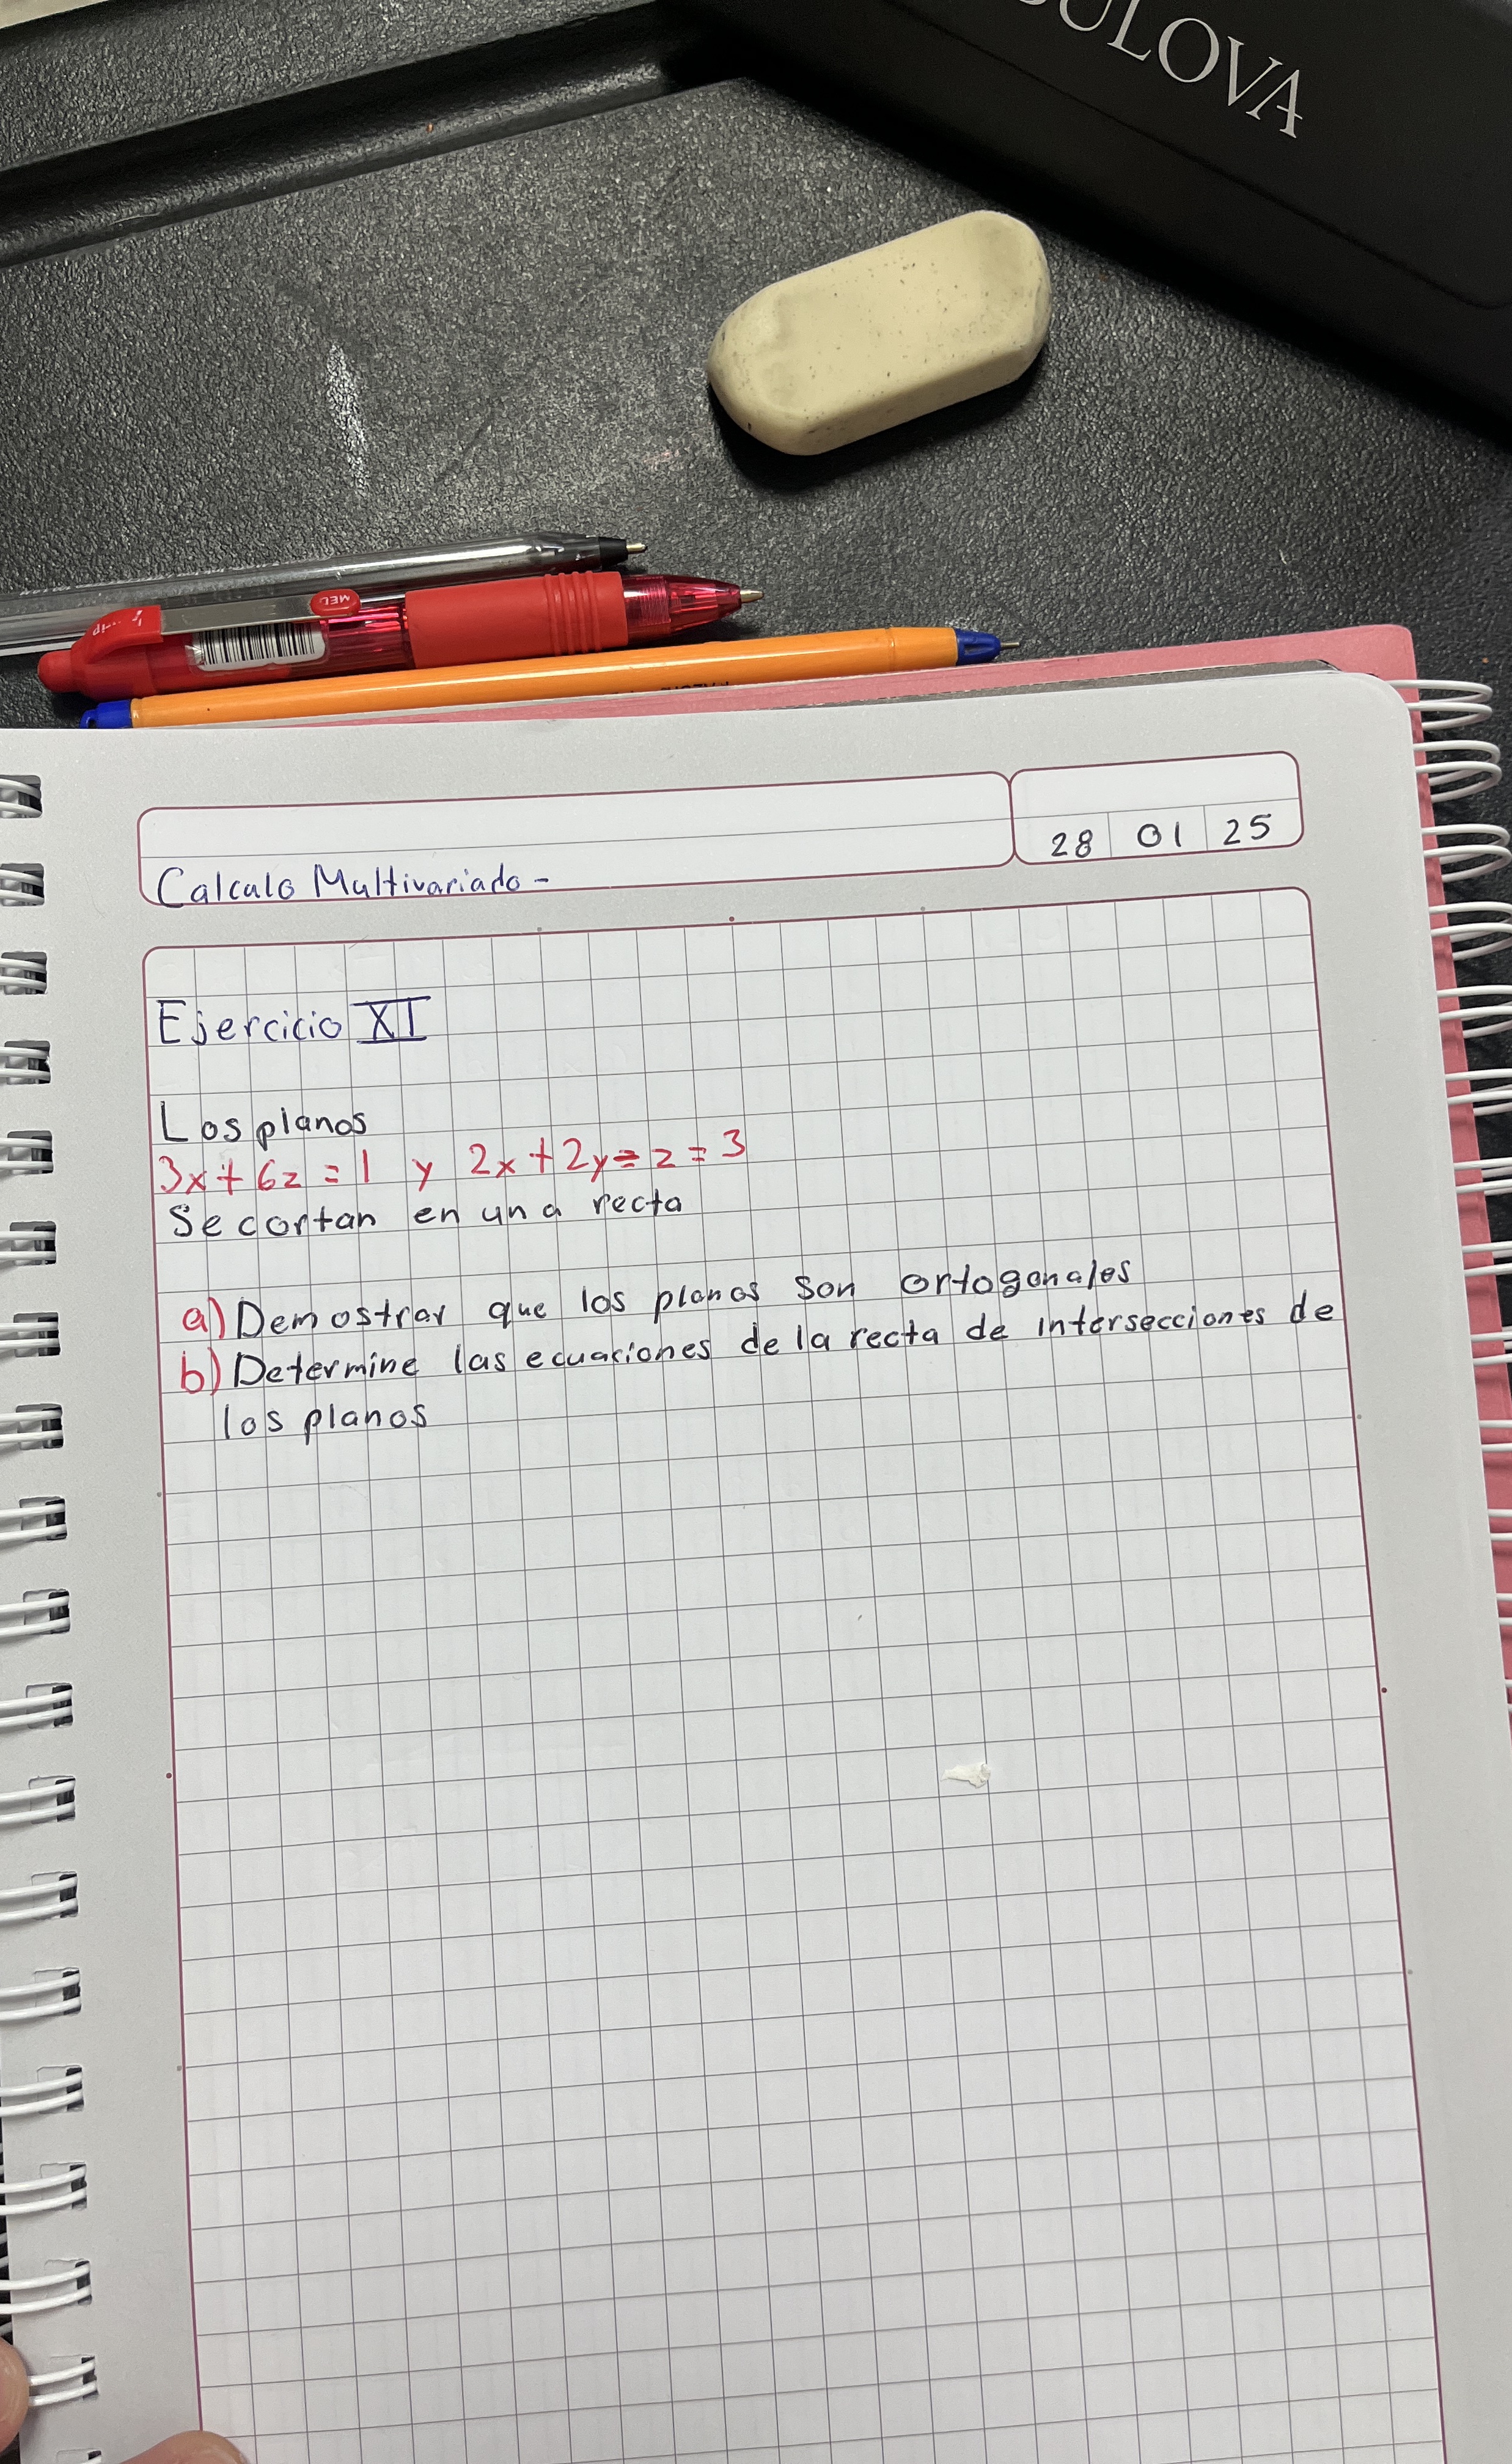 BULOVA
MED
28 01 25
Calculo Multivariado-
Ejercicio XI
Los planos
3x+6z=1 y 2x+2y-z=3
Se cortan en una recta
a) Demostrar que los planos son ortogonales
b) Determine las ecuaciones de la recta de intersecciones de
los planos